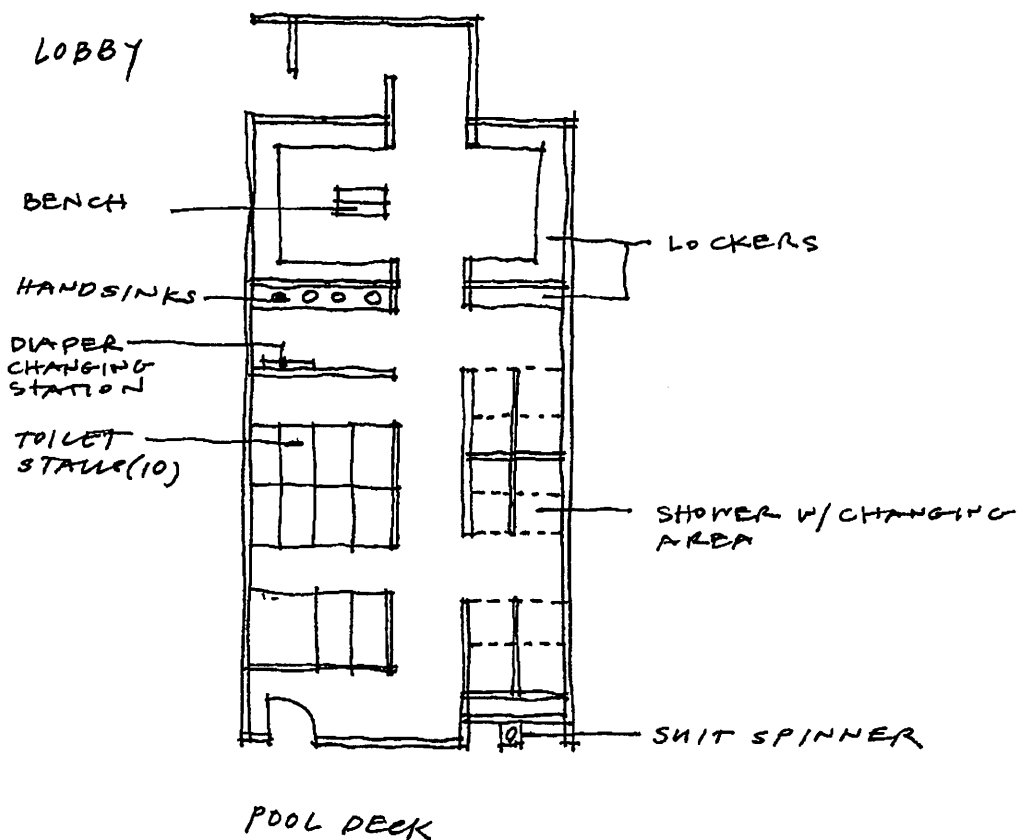 LOBBY
BENCH
LOCKERS
HANDSINKS
DIAPER
CHANGING
STATION
TOILET
STALLS(10)
SHOWER W/CHANGING
AREA
SUIT SPINNER
POOL DECK